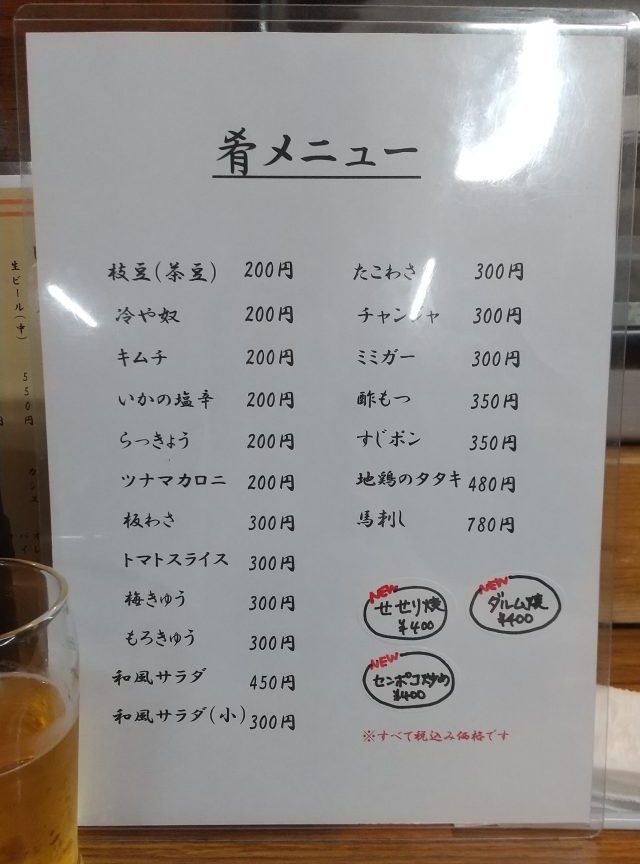 肴メニュー
枝豆(茶豆) 200円
冷や奴 200円
キムチ 200円
いかの塩辛 200円
らっきょう 200円
ツナマカロニ 200円
板わさ 300円
トマトスライス 300円
梅きゅう 300円
もろきゅう 300円
和風サラダ 450円
和風サラダ(小) 300円
たこわさ 300円
チャンジャ 300円
ミミガー 300円
酢もつ 350円
すじポン 350円
地鶏のタタキ 480円
馬刺し 780円
NEW
せせり焼
¥400
NEW
ダルム焼
¥400
NEW
センポコ炒め
¥400
※すべて税込み価格です
生ビール(中) 550円